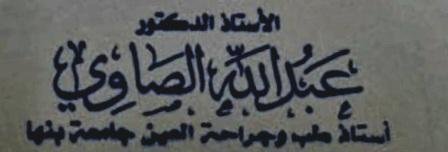 الأستاذ الدكتور
عبد الله الصاوي
أستاذ طب وجراحة العين جامعة بنها